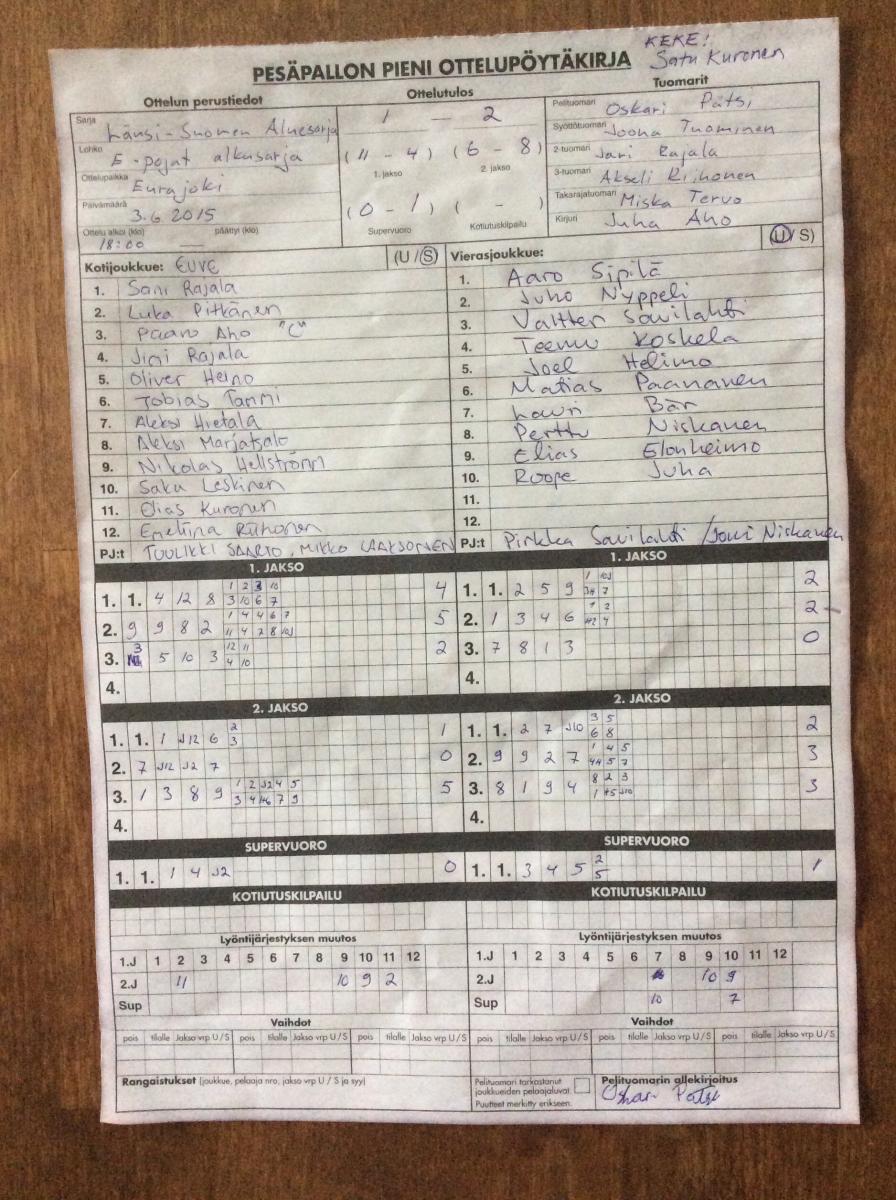 KEKE!
Satu Kuronen
PESÄPALLON PIENI OTTELUPÖYTÄKIRJA
Ottelun perustiedot
Sarja Länsi-Suomen Aluesarja
Lohko E-pojat alkusarja
Ottelupaikka Eurajoki
Päivämäärä 3.6.2015
Ottelu alkoi (klo) 18:00 päättyi (klo)
Ottelutulos
1 — 2
(11 - 4) (6 - 8)
1. jakso 2. jakso
(0 - 1) ( - )
Supervuoro Kotiutuskilpailu
Tuomarit
Pelituomari Oskari Pätsi
Syöttötuomari Joona Tuominen
2-tuomari Jari Rajala
3-tuomari Akseli Riihonen
Takarajatuomari Miska Tervo
Kirjuri Juha Aho
Kotijoukkue: EUVE (U/S)
1. Sani Rajala
2. Luka Pitkänen
3. Paavo Aho "C"
4. Jimi Rajala
5. Oliver Heino
6. Tobias Tammi
7. Aleksi Hietala
8. Aleksi Marjatsalo
9. Nikolas Hellström
10. Saku Leskinen
11. Elias Kuronen
12. Emeliina Riihonen
PJ:t TUULIKKI SAARIO, MIKKO LAAKSONEN
Vierasjoukkue: (U/S)
1. Aaro Sipilä
2. Juho Nyppeli
3. Valtteri Savilahti
4. Teemu Koskela
5. Joel Helimo
6. Matias Paananen
7. Lauri Bär
8. Perttu Niskanen
9. Elias Elonheimo
10. Roope Juha
11.
12.
PJ:t Pirkka Savilahti / Jouni Niskanen
1. JAKSO
1. 1. 4 12 8 1 2 3 10 4
3 10 6 7
2. 9 9 8 2 1 4 4 6 7 5
11 4 7 8 10J
3. 3 5 10 3 12 11 2
4 10
4.
1. JAKSO
1. 1. 2 5 9 1 10J 2
7
2. 1 3 4 6 1 2 2
4
3. 7 8 1 3 0
4.
2. JAKSO
1. 1. 1 J12 6 2 1
3
2. 7 J12 J2 7 0
3. 1 3 8 9 1 2 J2 4 5 5
3 4 7 9
4.
2. JAKSO
1. 1. 2 7 J10 3 5 2
6 8
2. 9 9 2 7 1 4 5 3
5 7
3. 8 1 9 4 8 2 3 3
1 J10
4.
SUPERVUORO
1. 1. 1 4 J2 0
SUPERVUORO
1. 1. 3 4 5 2 1
5
KOTIUTUSKILPAILU
KOTIUTUSKILPAILU
Lyöntijärjestyksen muutos
1.J 1 2 3 4 5 6 7 8 9 10 11 12
2.J 11 10 9 2
Sup
Lyöntijärjestyksen muutos
1.J 1 2 3 4 5 6 7 8 9 10 11 12
2.J 10 9
Sup 10 7
Vaihdot
pois tilalle Jakso vrp U/S pois tilalle Jakso vrp U/S pois tilalle Jakso vrp U/S
Vaihdot
pois tilalle Jakso vrp U/S pois tilalle Jakso vrp U/S pois tilalle Jakso vrp U/S
Rangaistukset (joukkue, pelaaja nro, jakso vrp U / S ja syy)
Pelituomari tarkastanut
joukkueiden pelaajaluvat.
Puutteet merkitty erikseen.
Pelituomarin allekirjoitus
Oskari Pätsi